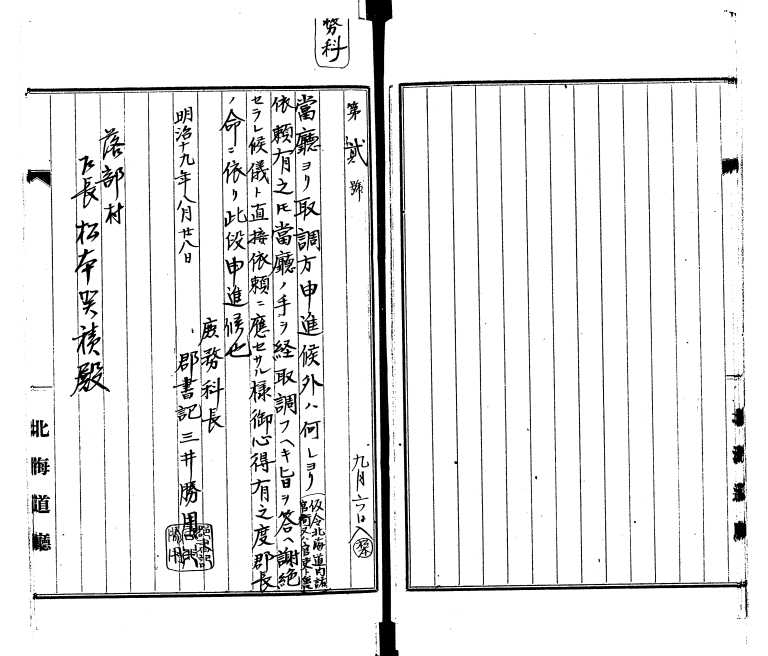 務科
第貳號
九月六日入
當廳ヨリ取調方申進候外ハ何レヨリ
仮令北海道内諸
官
依頼有之トモ當廳ノ手ヲ経取調フヘキ旨ヲ答ヘ謝絶
セラレ候儀ト直接依頼ニ應セサル様御心得有之度郡長
ノ命ニ依リ此段申進候也
明治十九年八月廿八日
庶務科長
郡書記三井勝用
落部村
戸長松本
殿
北海道廳